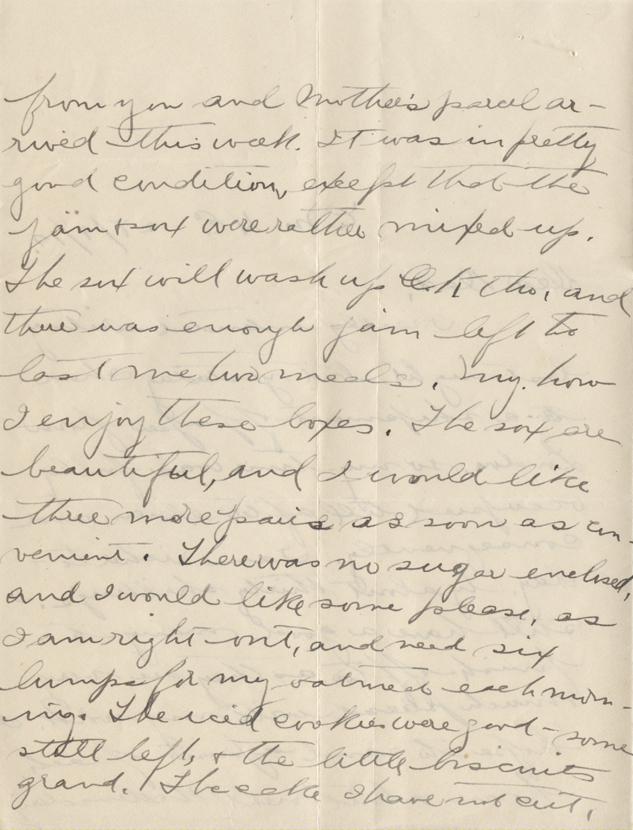 from you and Mother's parcel ar-
rived this week. It was in pretty
good condition, except that the
jam & sox were rather mixed up.
The sox will wash up O.K. tho, and
there was enough jam left to
last me two meals. My. how
I enjoy these boxes. The sox are
beautiful, and I would like
three more pairs as soon as con-
venient. There was no sugar enclosed,
and I would like some please, as
I am right out, and need six
lumps for my oatmeal each morn-
ing. The iced cookies were good - some
still left, & the little biscuits
grand. The cake I have not cut,